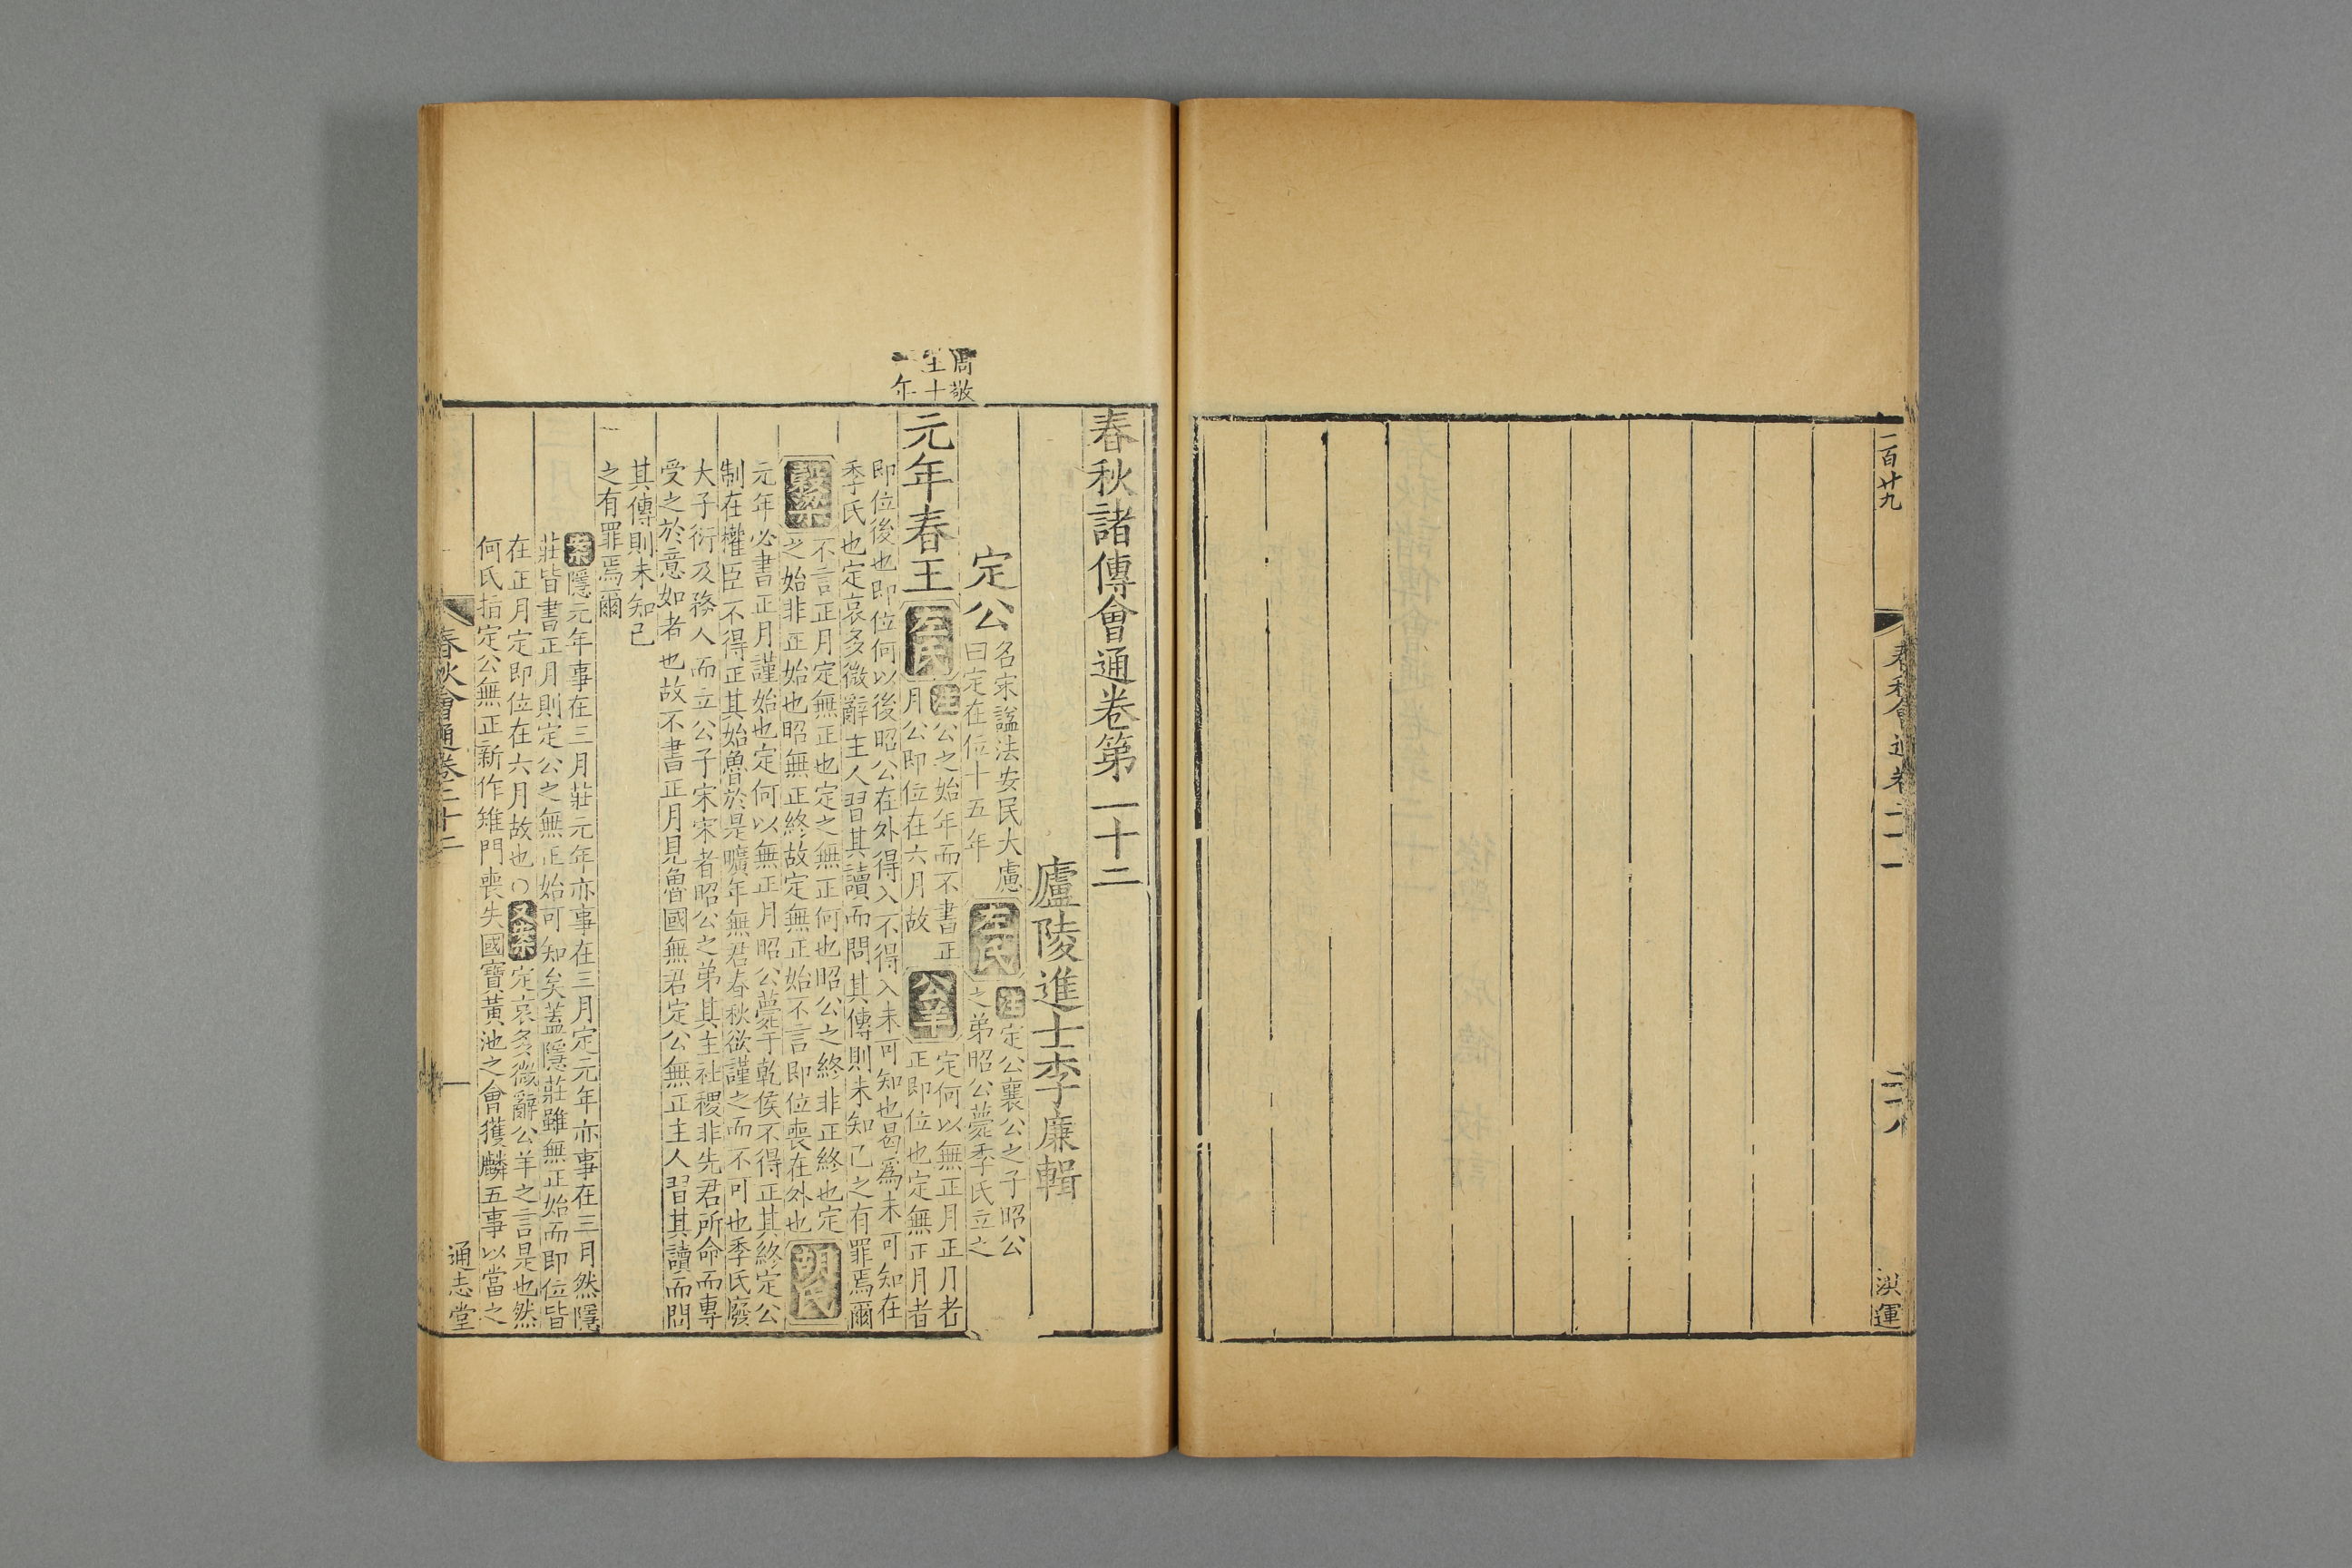 一百廿九
春秋會通卷二十一
二十八
洪運
春秋諸傳會通卷第二十二
廬陵進士李廉輯
定公
名宋謚法安民大慮
曰定在位十五年
左氏
注定公襄公之子昭公
之弟昭公薨季氏立之
周敬
王十
一年
元年春王
左氏
注公之始年而不書正
月公即位在六月故
公羊
定何以無正月正月者
正即位也定無正月者
即位後也即位何以後昭公在外得入不得入未可知也曷爲未可知在
季氏也定哀多微辭主人習其讀而問其傳則未知己之有罪焉爾
穀梁
不言正月定無正也定之無正何也昭公之終非正終也定
之始非正始也昭無正終故定無正始不言即位喪在外也
胡氏
元年必書正月謹始也定何以無正月昭公薨于乾侯不得正其終定公
制在權臣不得正其始魯於是曠年無君春秋欲謹之而不可也季氏廢
大子衍及務人而立公子宋宋者昭公之弟其主社稷非先君所命而專
受之於意如者也故不書正月見魯國無君定公無正主人習其讀而問
其傳則未知己
之有罪焉爾
案隱元年事在三月莊元年亦事在三月定元年亦事在三月然隱
莊皆書正月則定公之無正始可知矣蓋隱莊雖無正始而即位皆
在正月定即位在六月故也○又案定哀多微辭公羊之言是也然
何氏指定公無正新作雉門喪失國寶黃池之會獲麟五事以當之
春秋會通卷二十二
一
通志堂